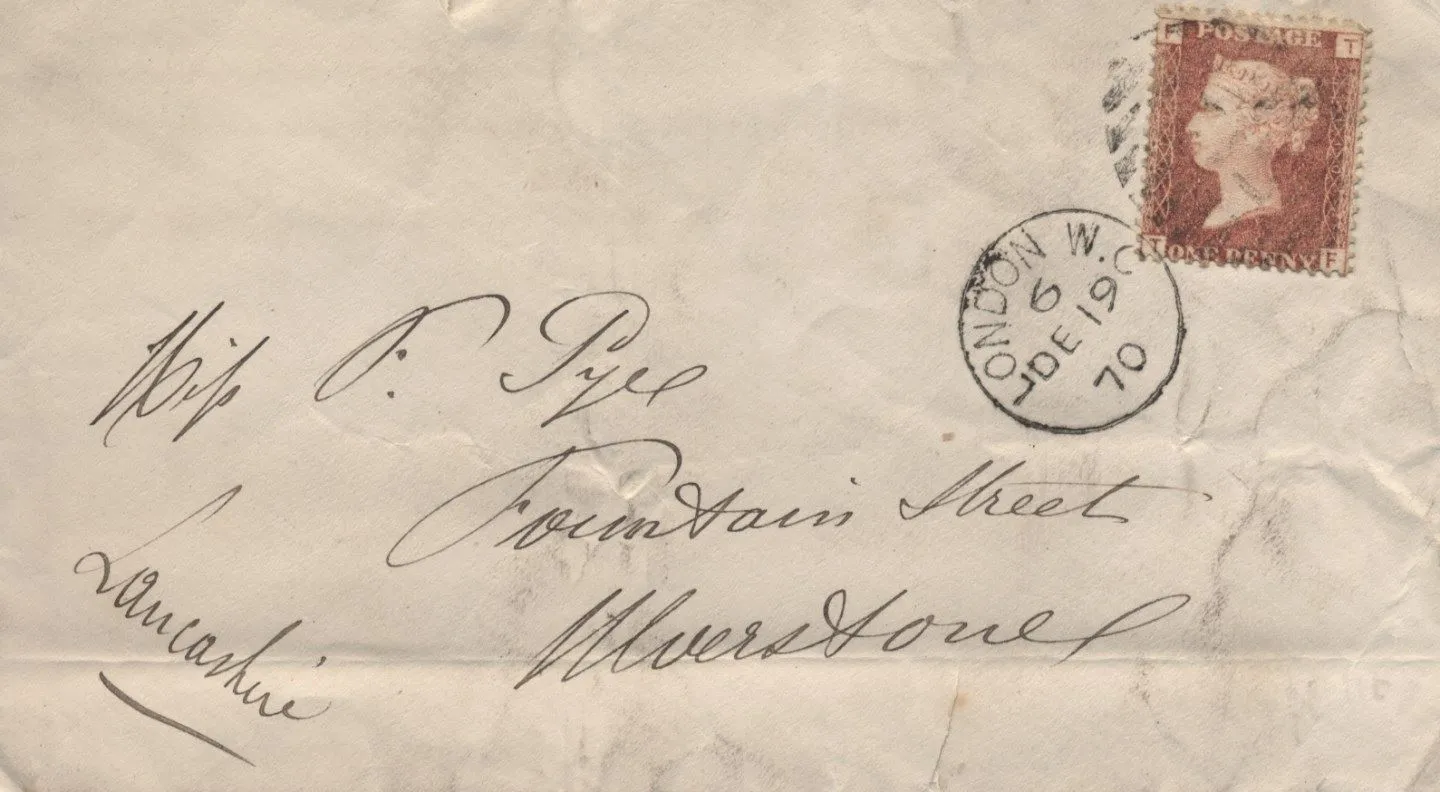 F POSTAGE T
T ONE PENNY F
LONDON W.C
6
DE 19
70
Miss P. Pye
Fountain Street
Ulverstone
Lancashire